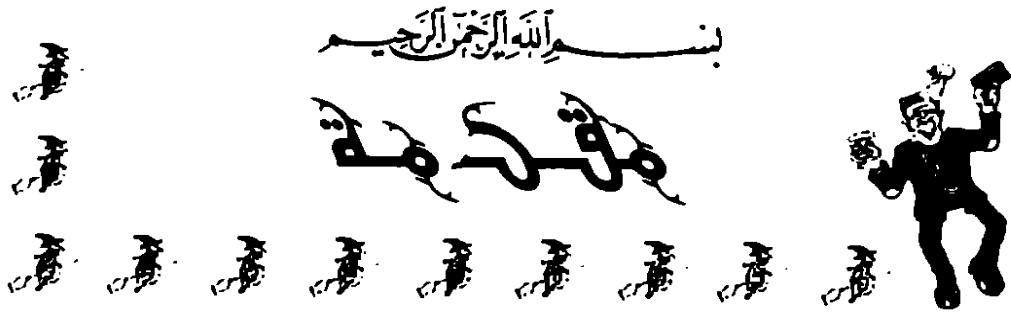 بسم الله الرحمن الرحيم
مقدمة